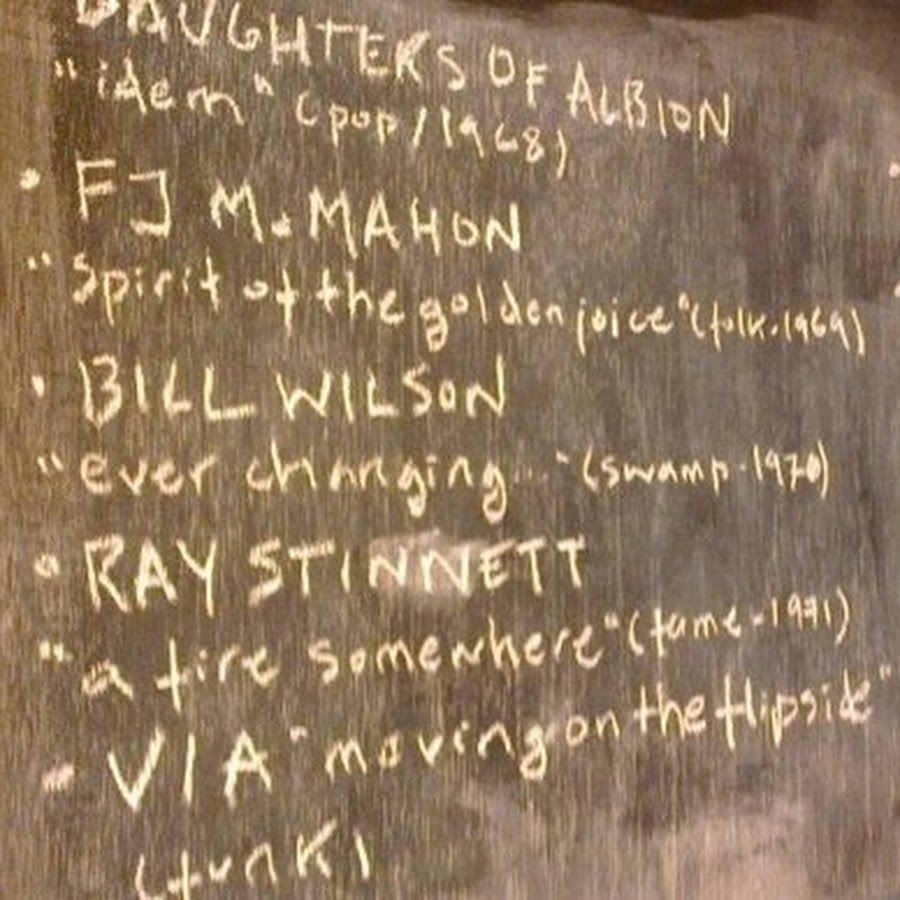 DAUGHTERS OF ALBION
"idem" (pop/1968)
• FJ McMAHON
"Spirit of the golden joice" (folk.1969)
• BILL WILSON
"ever changing..." (swamp.1970)
• RAY STINNETT
"a fire somewhere" (fame-1971)
- VIA "moving on the flipside"
(funk)